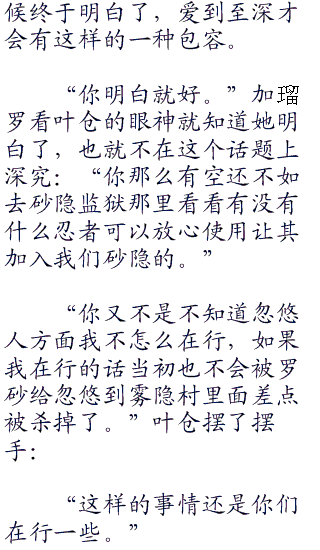 候终于明白了，爱到至深才
会有这样的一种包容。
“你明白就好。”加瑠
罗看叶仓的眼神就知道她明
白了，也就不在这个话题上
深究：“你那么有空还不如
去砂隐监狱那里看看有没有
什么忍者可以放心使用让其
加入我们砂隐的。”
“你又不是不知道忽悠
人方面我不怎么在行，如果
我在行的话当初也不会被罗
砂给忽悠到雾隐村里面差点
被杀掉了。”叶仓摆了摆
手：
“这样的事情还是你们
在行一些。”